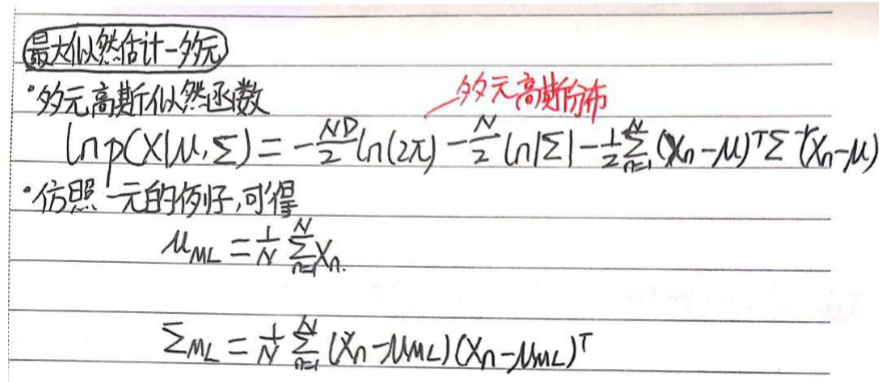 最大似然估计-多元
·多元高斯似然函数
多元高斯分布
ln p(X|μ,Σ) = -ND/2 ln(2π) - N/2 ln|Σ| - 1/2 Σ_{n=1}^{N} (x_n-μ)^T Σ^{-1} (x_n-μ)
·仿照一元的例子,可得
μ_{ML} = 1/N Σ_{n=1}^{N} x_n.
Σ_{ML} = 1/N Σ_{n=1}^{N} (x_n-μ_{ML})(x_n-μ_{ML})^T